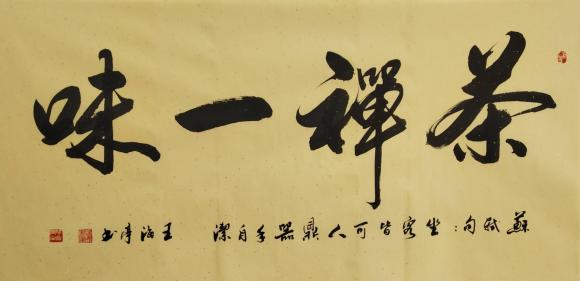 茶禪一味
蘇軾句：坐客皆可人鼎器手自潔 王海清书